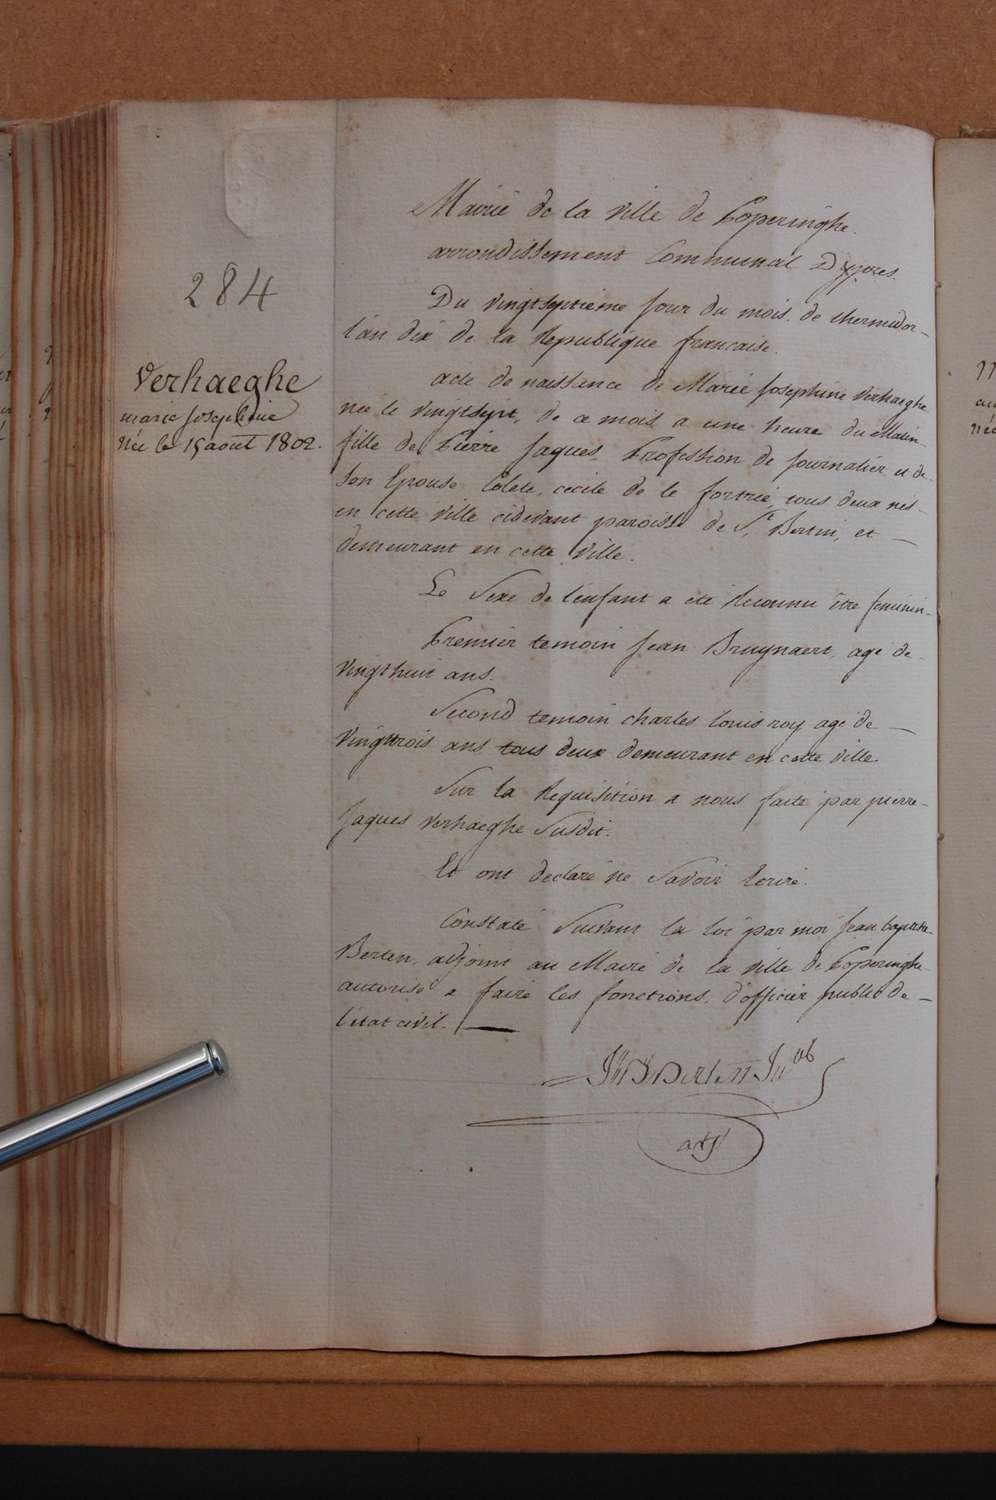 284
Verhaeghe
marie Josephine
Née le 15 août 1802.
Mairie de la ville de Poperinghe.
arrondissement Communal D'ypres.
Du vingtseptième jour du mois de thermidor
l'an dix de la Republique francaise.
acte de naissence de Marie Josephine Verhaeghe
née le vingtsept, de ce mois a une heure du Matin
fille de Pierre Jaques Profession de Journalier et de
Son Epouse Colete, cecile de le fortrie tous deux nes
en cette ville cidevant paroisse de St. Bertin, et
demeurant en cette ville.
Le Sexe de l'enfant a été Reconnu être feminin
Premier temoin Jean Bruynaert, age de
vingthuit ans.
Second temoin charles louis roy age de
vingttrois ans tous deux demeurant en cette ville.
Sur la Requisition a nous faite par pierre
Jaques Verhaeghe Susdit.
Et ont declaré ne Savoir Ecrire.
Constaté Suivant la loi par moi Jean baptiste
Berten, adjoint au Maire de la ville de Poperinghe
autorisé a faire les fonctions d'officier public de
l'état civil.
Berten
adj